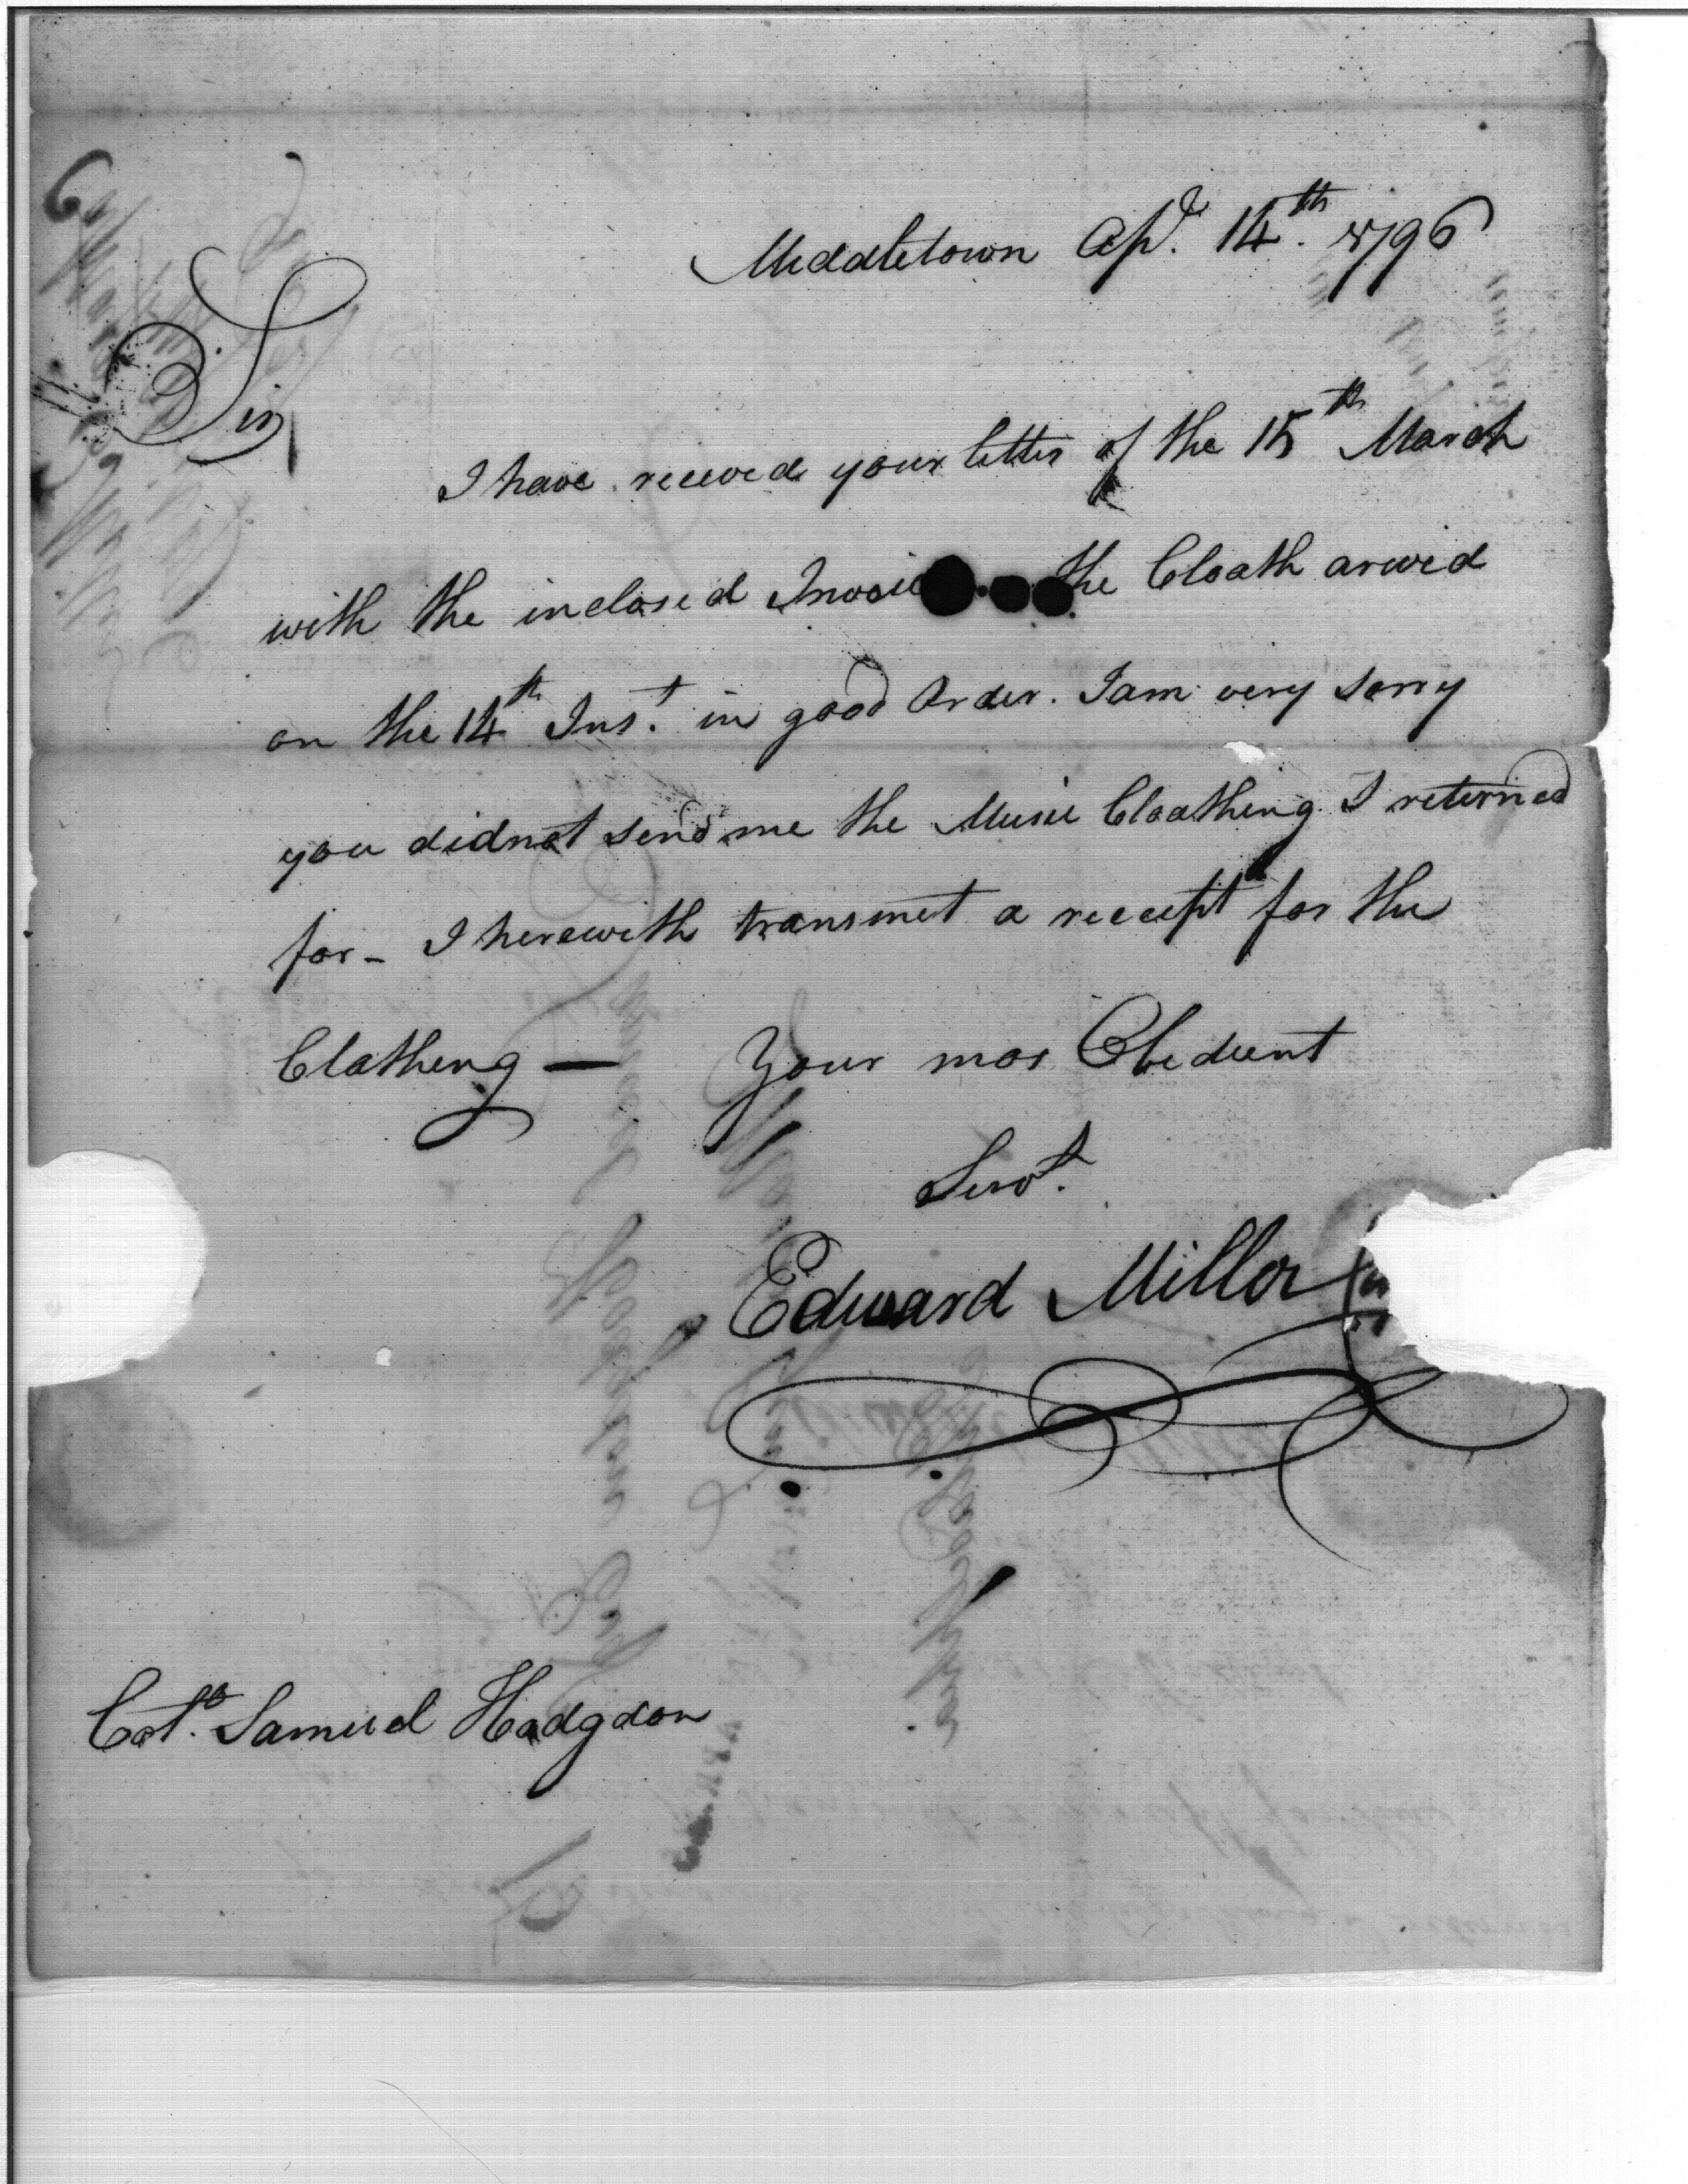 Middletown Apl. 14th. 1796
Sir,
I have receved your letter of the 15th March
with the inclosed Invoice the Cloath arived
on the 14th Inst. in good Order. I am very sorry
you did not send me the Music Cloathing I returned
for - I herewith transmet a receipt for the
Clatheng — Your mos Obedient
Servt.
Edward Miller
Colo. Samuel Hodgdon